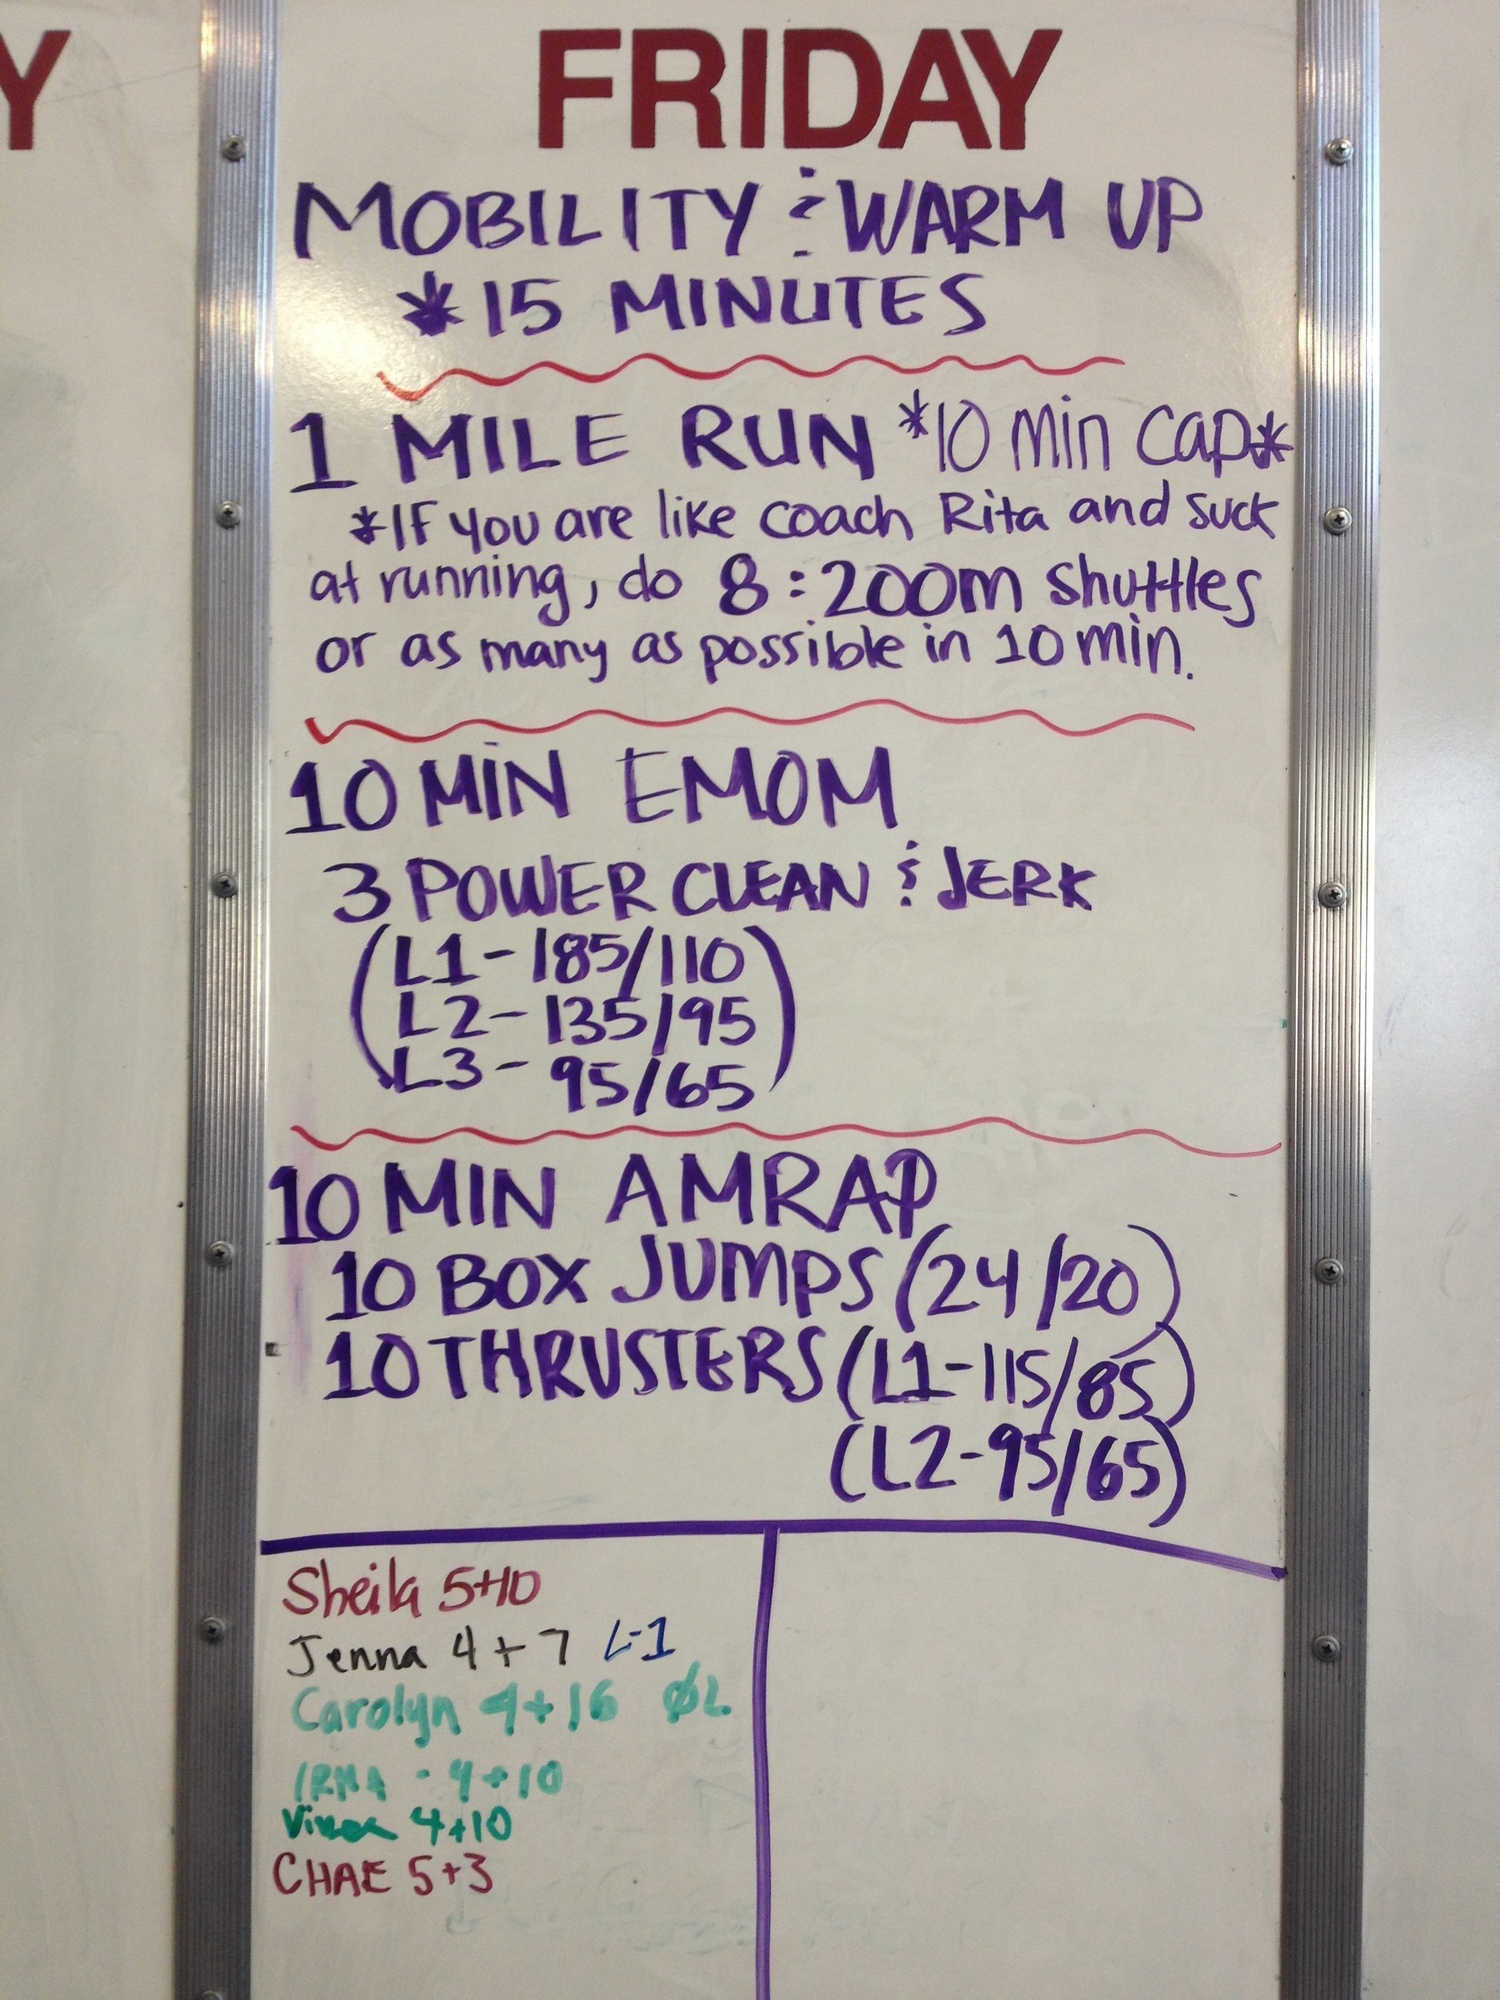 Y
FRIDAY
MOBILITY & WARM UP
*15 MINUTES
1 MILE RUN *10 min cap*
*IF you are like coach Rita and suck
at running, do 8:200m shuttles
or as many as possible in 10 min.
10 MIN EMOM
3 POWER CLEAN & JERK
(L1-185/110)
L2-135/95
L3-95/65
10 MIN AMRAP
10 BOX JUMPS (24/20)
10 THRUSTERS (L1-115/85)
(L2-95/65)
Sheila 5+10
Jenna 4+7 L-1
Carolyn 4+16
IRMA - 4+10
4+10
CHAE 5+3